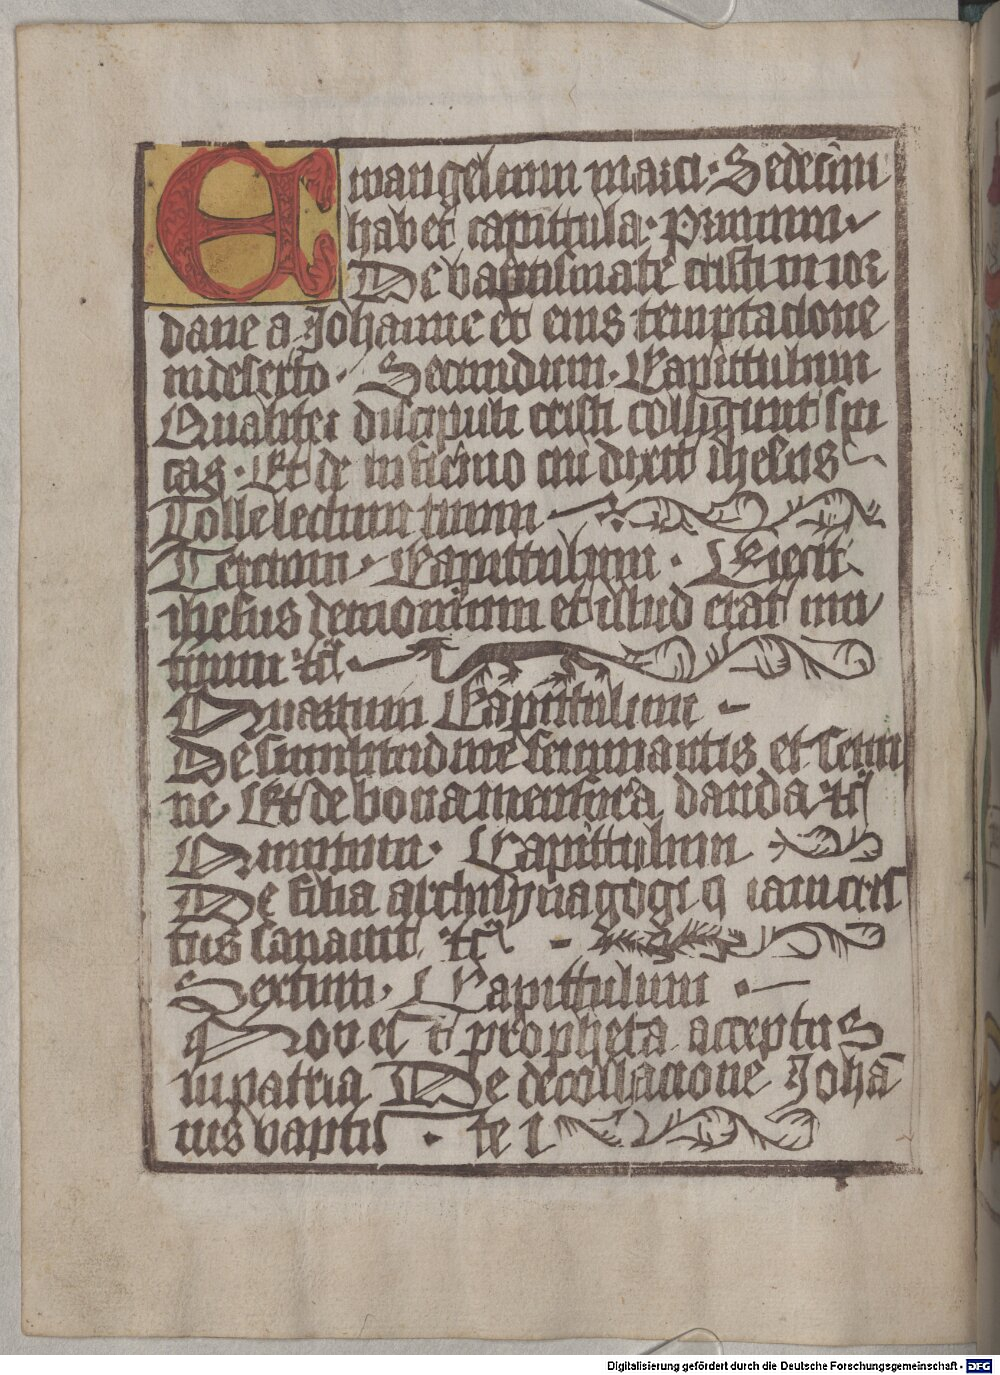 Ewangelium marci · Sedecim
habet capittula · Primum ·
De baptismate cristi in ior
dane a Johanne et eius temptacione
in deserto · Secundum · Capittulum
Qualiter discipuli cristi colligunt spi
cas · Et de infirmo cui dixit ihesus
Tolle lectum tuum
Tercium · Capittulum · Eiecit
ihesus demonium et illud erat mu
tuum ⁊c̄
Quartum Capittulum
De similitudine seminantis et semi
ne Et de bona mensura danda ⁊c̄
Quintum · Capittulum
De filia archisynagogi q iam cris
tus sanauit ⁊c̄
Sextum · Capittulum
Non est propheta acceptus
in patria De decollacione Johā
nis baptis te
Digitalisierung gefördert durch die Deutsche Forschungsgemeinschaft - DFG